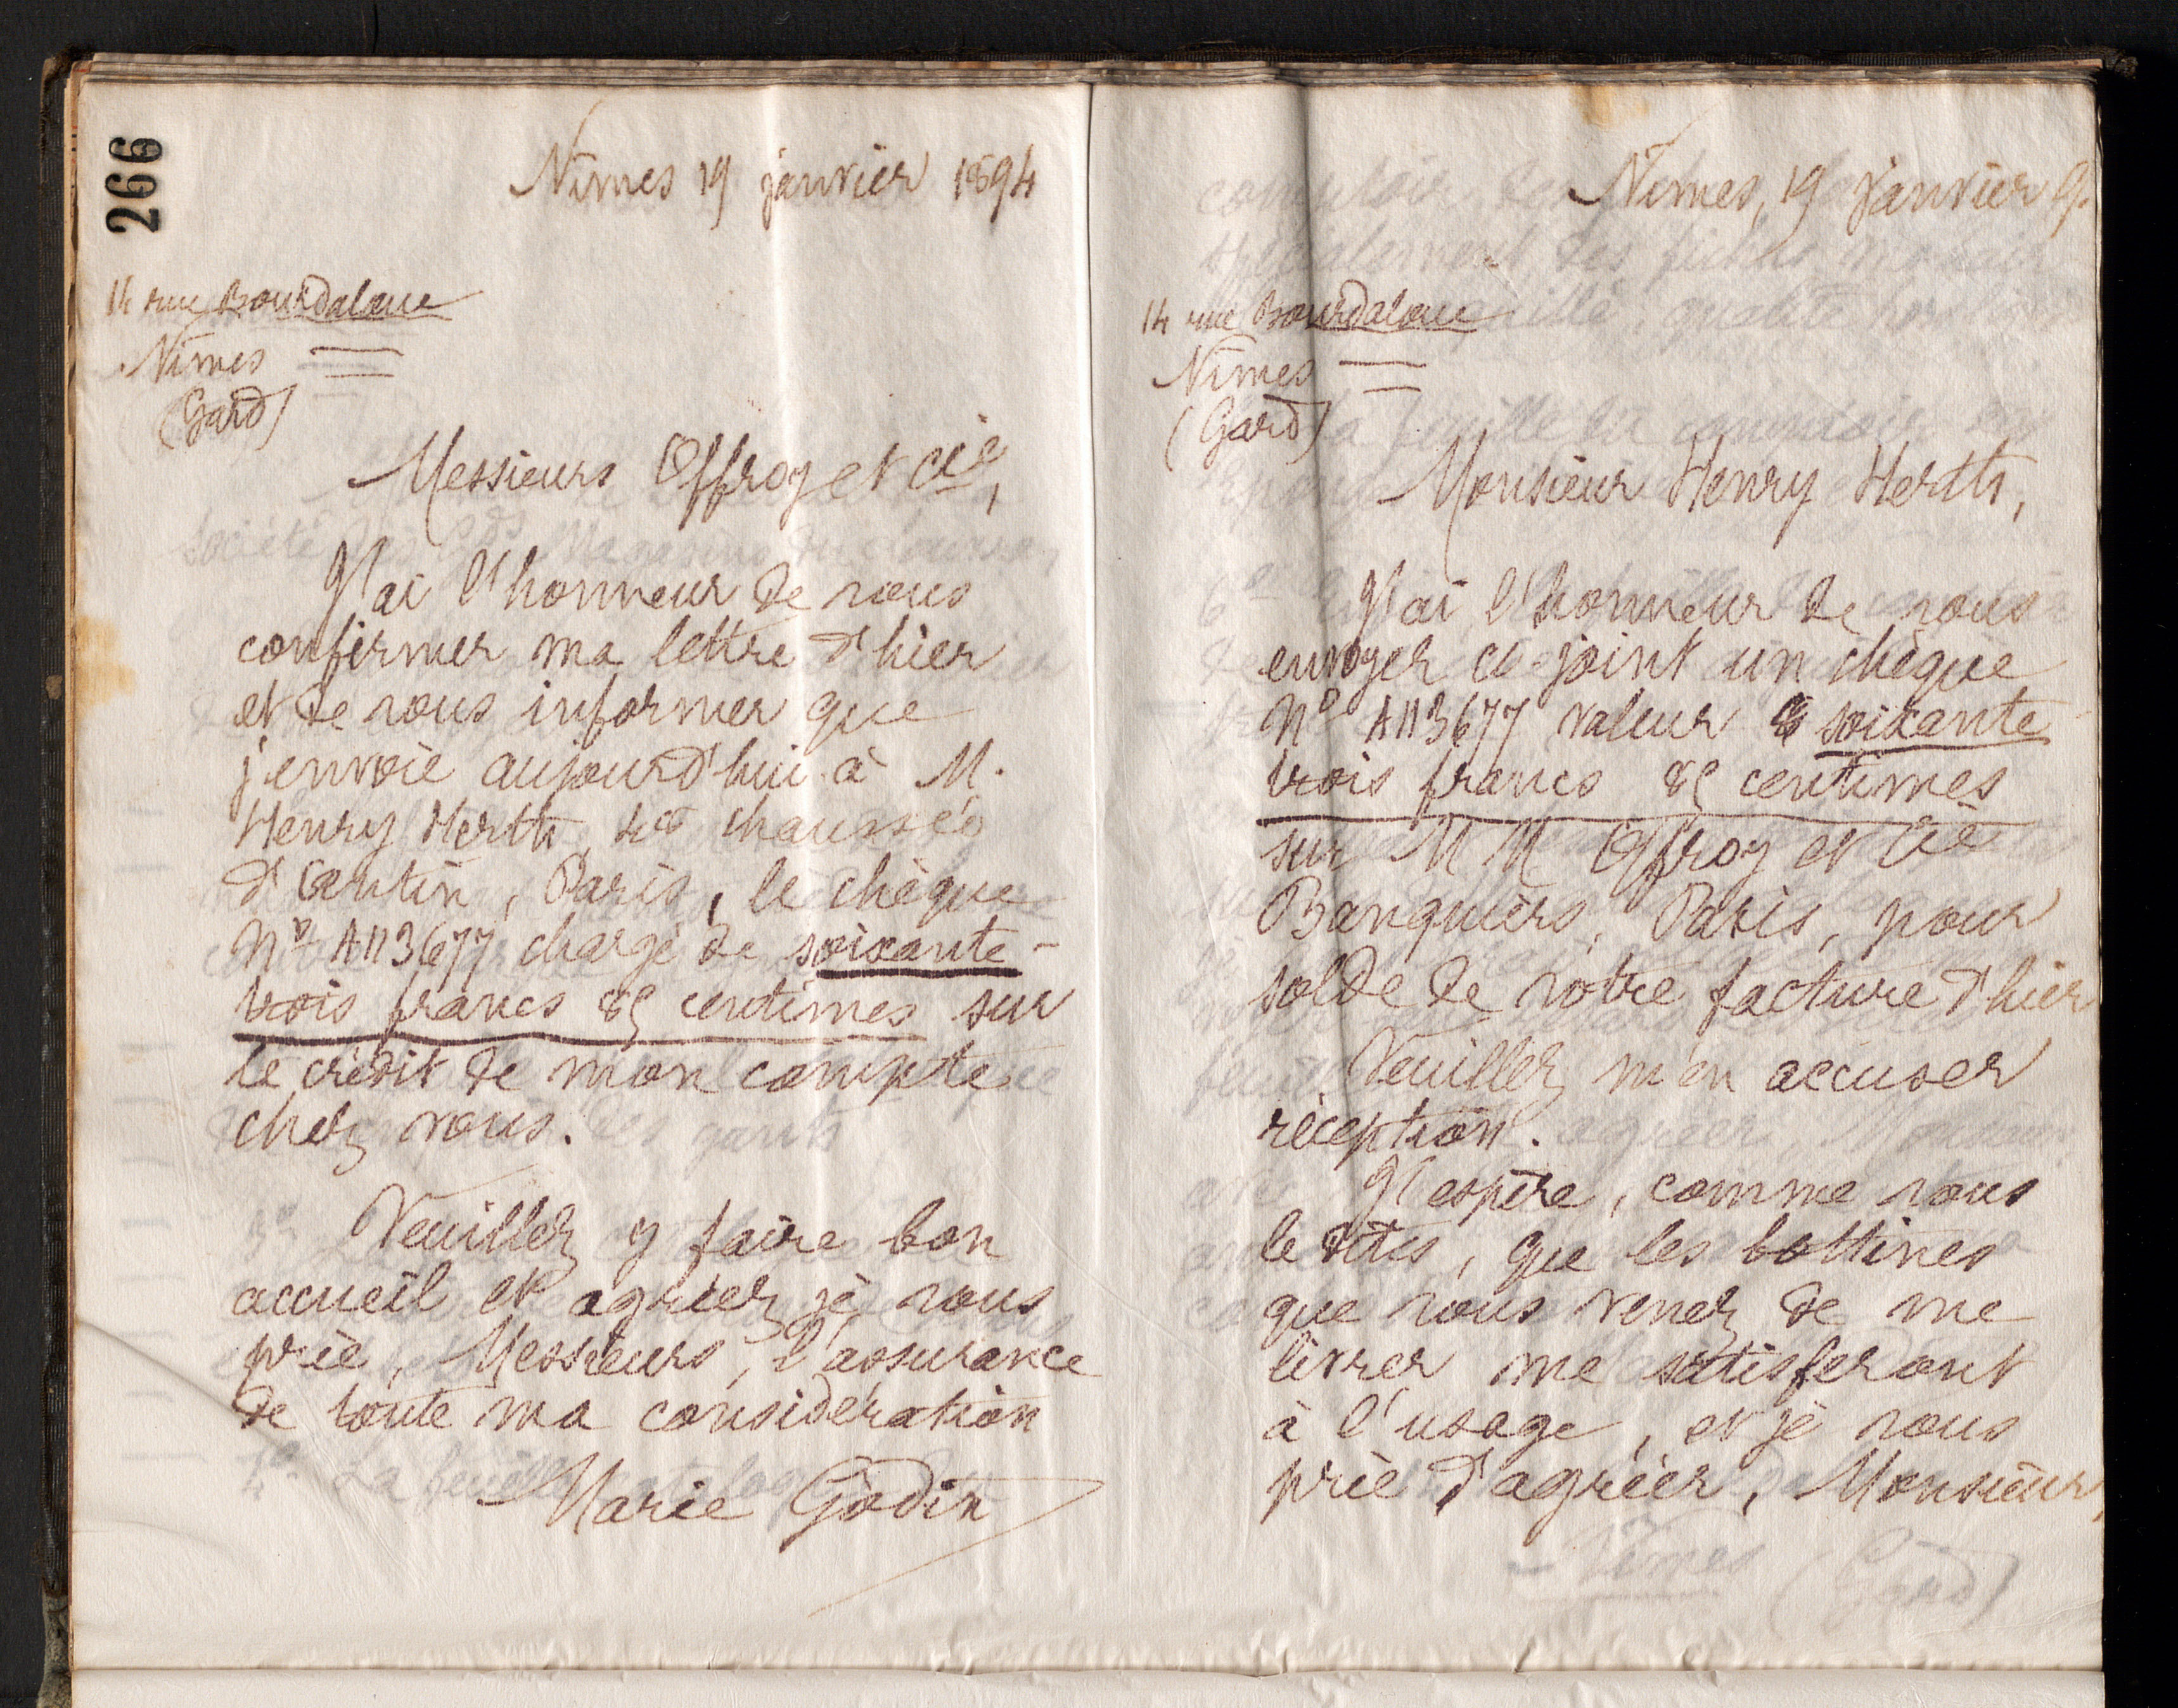 266
Nîmes 19 janvier 1894
14 rue Bourdaloue
Nîmes
(Gard)
Messieurs Offroy et Cie,
J'ai l'honneur de vous
confirmer ma lettre d'hier
et de vous informer que
j'envoie aujourd'hui à M.
Henry Herth, chaussée
d'Antin, Paris, le chèque
No A113677 chargé de soixante-
trois francs 85 centimes sur
le crédit de mon compte
chez vous.
Veuillez y faire bon
accueil et agréer, je vous
prie, Messieurs, l'assurance
de toute ma considération
Marie Godin
Nîmes, 19 janvier 9
14 rue Bourdaloue
Nîmes
(Gard)
Monsieur Henry Herth,
J'ai l'honneur de vous
envoyer ci-joint un chèque
No A113677 valeur soixante
trois francs 85 centimes
sur MM Offroy et Cie
Banquiers, Paris, pour
solde de votre facture d'hier
Veuillez m'en accuser
réception.
J'espère, comme vous
le dites, que les bottines
que vous venez de me
livrer me satisferont
à l'usage, et je vous
prie d'agréer, Monsieur,